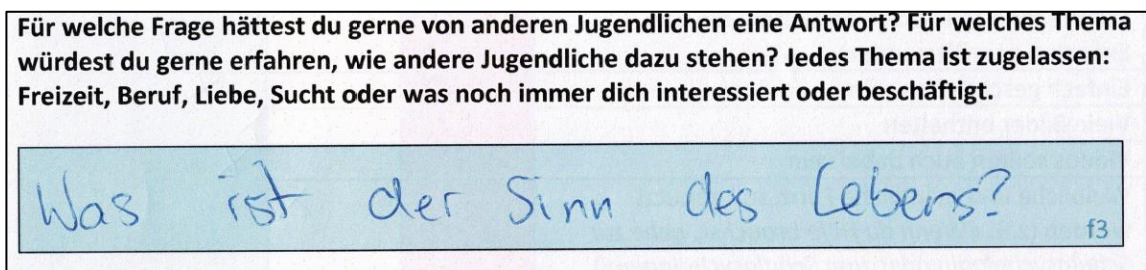 Für welche Frage hättest du gerne von anderen Jugendlichen eine Antwort? Für welches Thema
würdest du gerne erfahren, wie andere Jugendliche dazu stehen? Jedes Thema ist zugelassen:
Freizeit, Beruf, Liebe, Sucht oder was noch immer dich interessiert oder beschäftigt.
Was ist der Sinn des Lebens?
f3